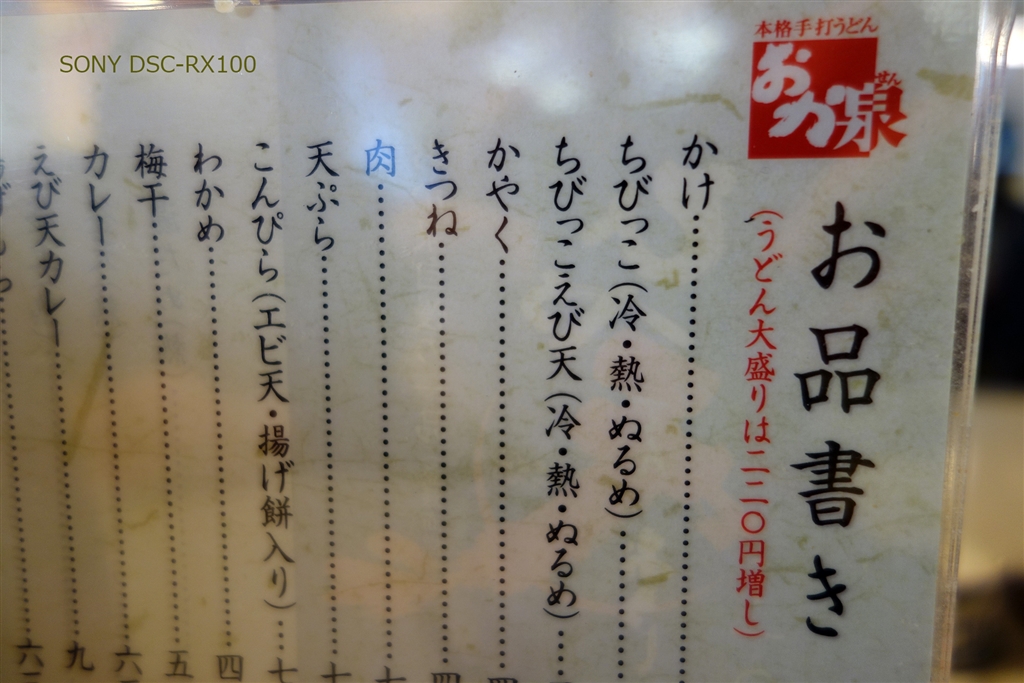 SONY DSC-RX100
本格手打うどん
おか泉
せん
お品書き
(うどん大盛りは二二〇円増し)
かけ
ちびっこ(冷・熱・ぬるめ)
ちびっこえび天(冷・熱・ぬるめ)
かやく
きつね
肉
天ぷら
こんぴら(エビ天・揚げ餅入り) 七
わかめ 四
梅干 五
カレー 六
えび天カレー 九
六